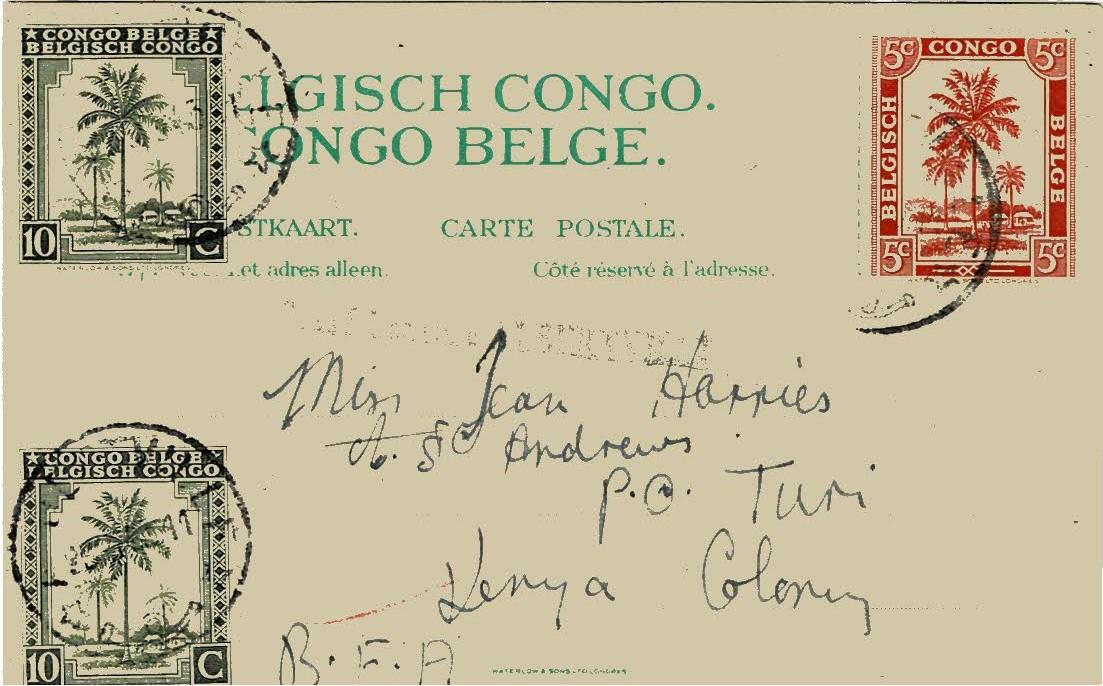 ★CONGO BELGE★
BELGISCH CONGO
10 C
WATERLOW & SONS LTD LONDRES
ELGISCH CONGO.
CONGO BELGE.
STKAART. CARTE POSTALE.
et adres alleen. Côté réservé à l'adresse.
5c CONGO 5c
BELGISCH
BELGE
5c 5c
WATERLOW & SONS LTD LONDRES
Miss Jean Harries
St Andrews
P.O. Turi
Kenya Colony
B.E.A
★CONGO BELGE★
BELGISCH CONGO
10 C
WATERLOW & SONS LTD LONDRES